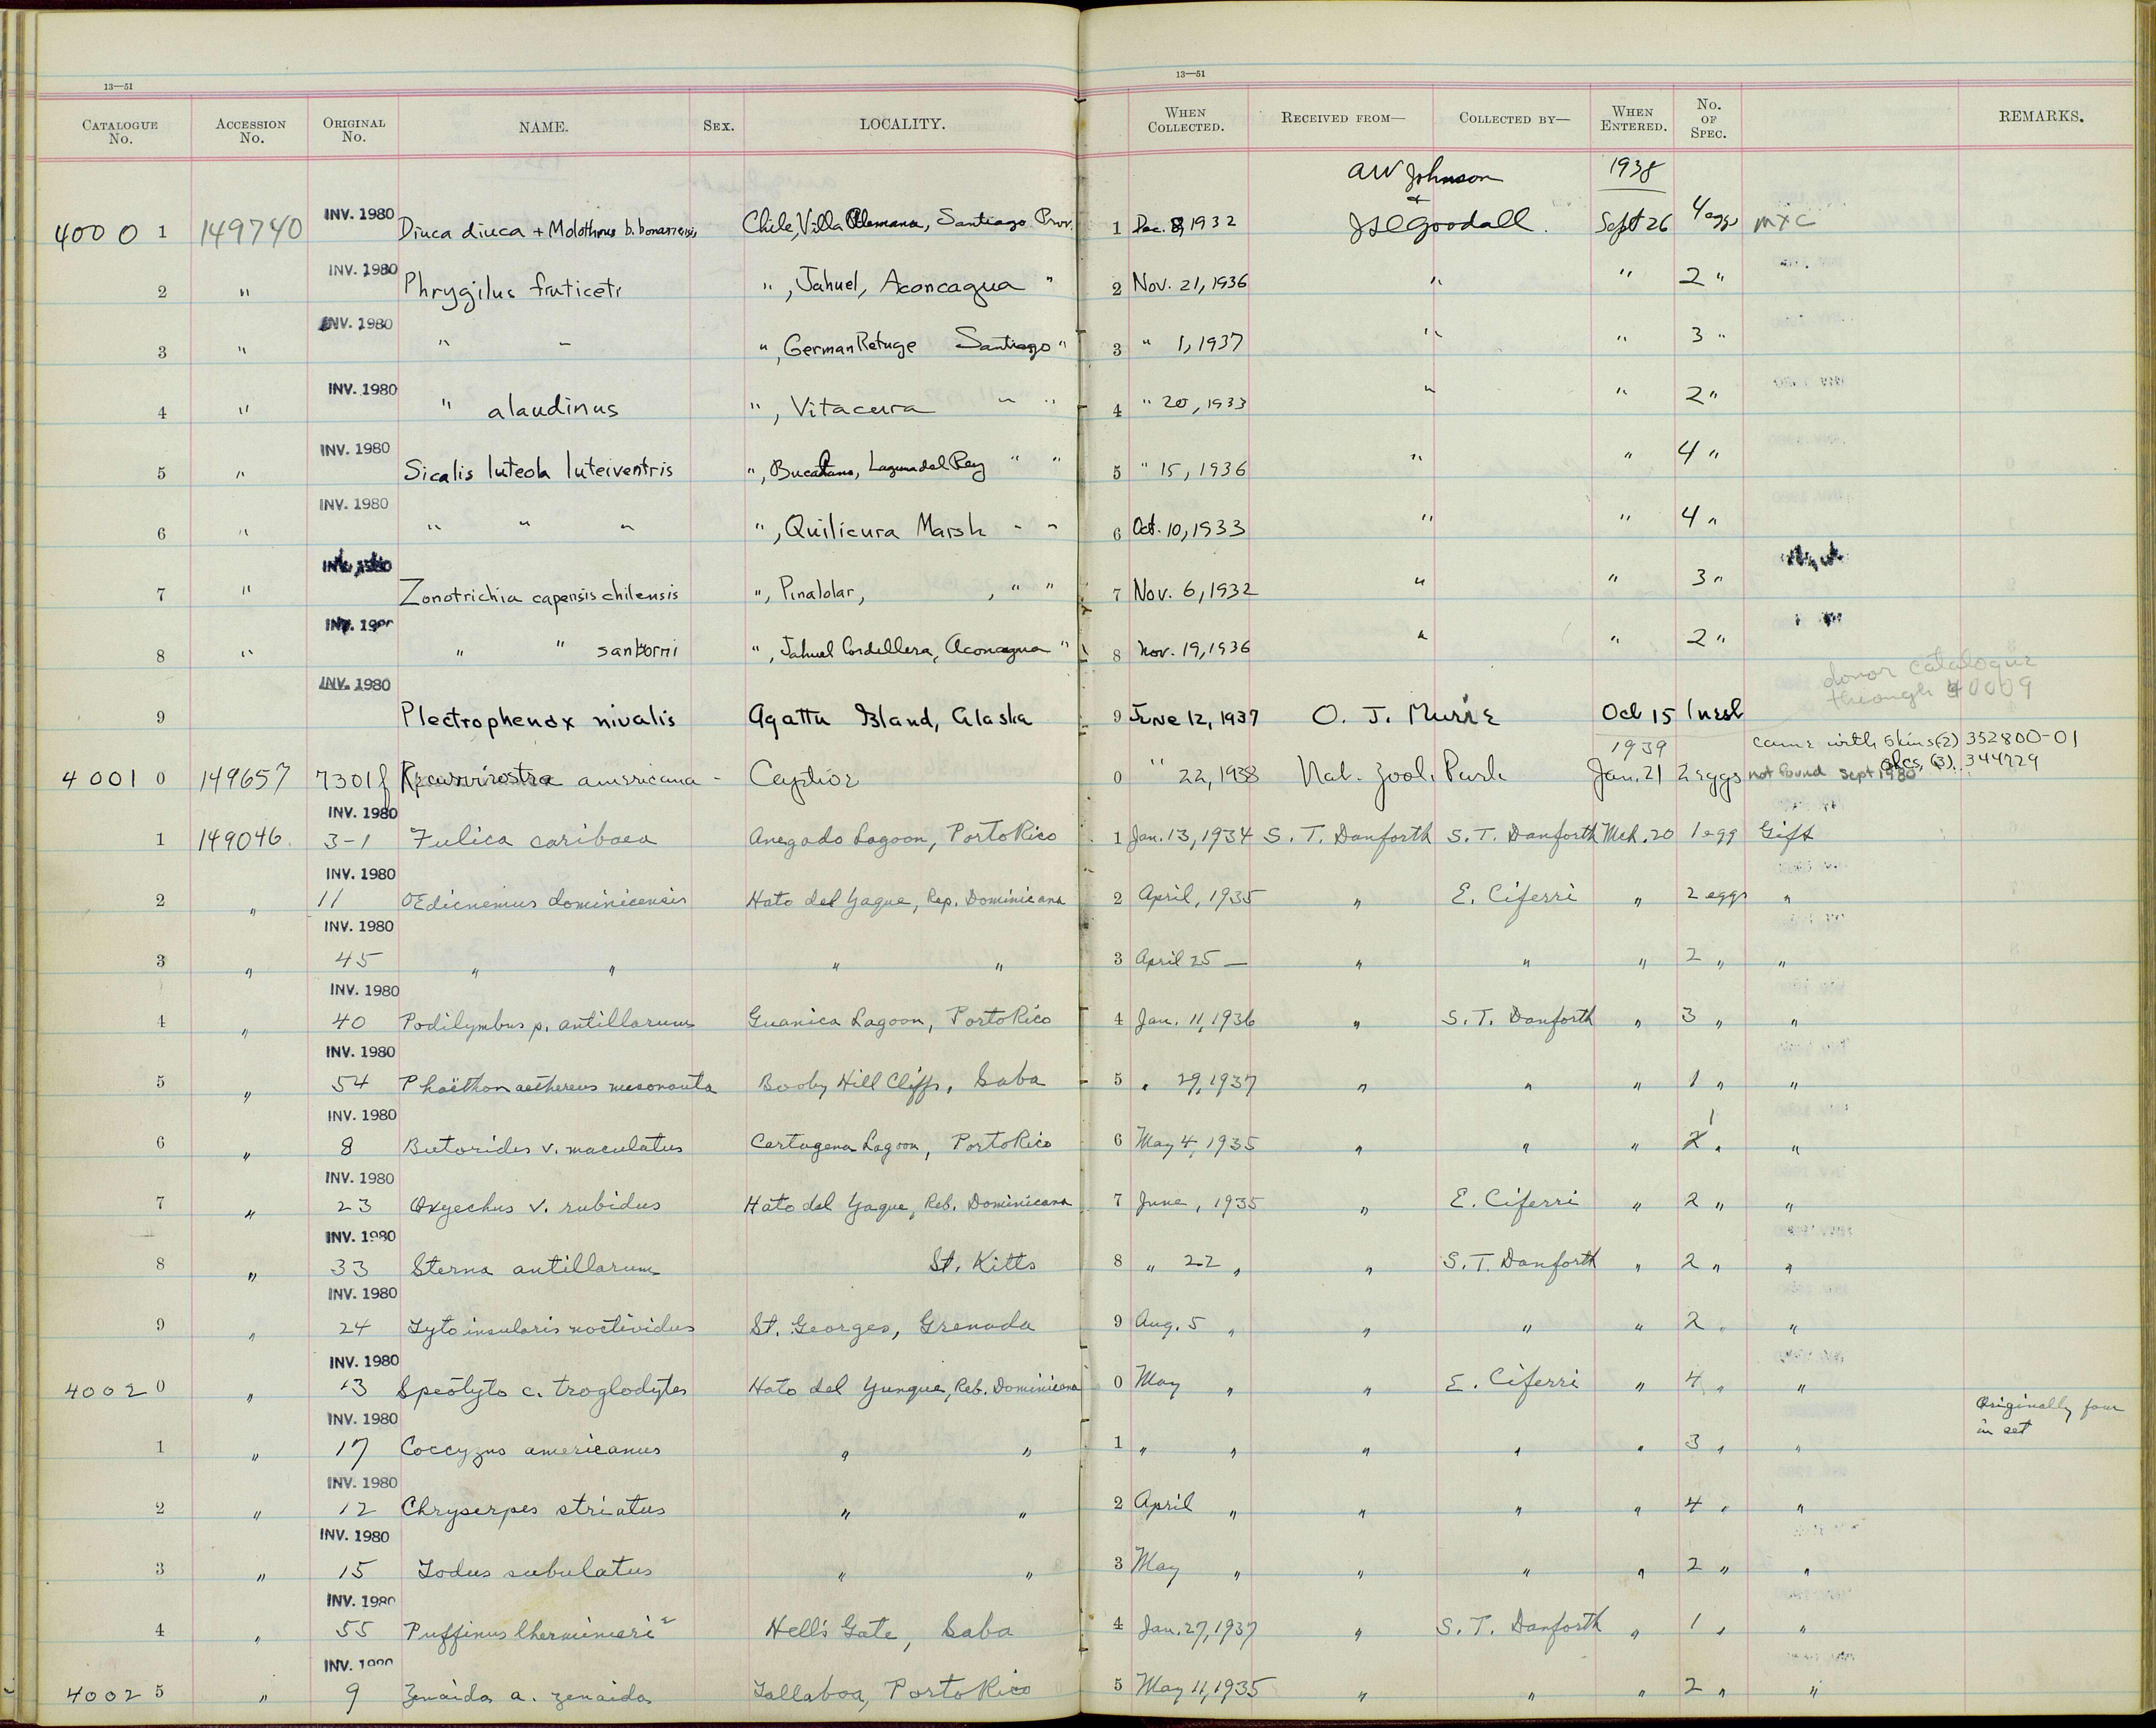 13—51
13—51
CATALOGUE No. ACCESSION No. ORIGINAL No. NAME. SEX. LOCALITY. WHEN COLLECTED. RECEIVED FROM— COLLECTED BY— WHEN ENTERED. No. OF SPEC. REMARKS.
AW Johnson 1938
&
INV. 1980
4000 1 149740 Diuca diuca + Molothrus b. bonariensis Chile, Villa Alemana, Santiago Prov. 1 Dec. 8, 1932 Goodall. Sept 26 4 eggs
INV. 1980
2 " Phrygilus fruticeti ", Jahuel, Aconcagua " 2 Nov. 21, 1936 " " 2 "
INV. 1980
3 " " " ", German Refuge Santiago " 3 " 1, 1937 " " 3 "
INV. 1980
4 " " alaudinus ", Vitacura " " 4 " 20, 1933 " " 2 "
INV. 1980
5 " Sicalis luteola luteiventris ", Laguna del Rey " " 5 " 15, 1936 " " 4 "
INV. 1980
6 " " " " ", Quilicura Marsh " " 6 Oct. 10, 1933 " " 4 "
INV. 1980
7 " Zonotrichia capensis chilensis ", Pinalolar, , " " 7 Nov. 6, 1932 " " 3 "
INV. 1980
8 " " " sanborni ", Jahuel Cordellera, Aconagua " 8 Nov. 19, 1936 " " 2 "
donor catalogue
through 40009
INV. 1980
9 Plectrophenox nivalis Agattu Island, Alaska 9 June 12, 1937 O. J. Murie Oct 15 1 nest
1939 came with skins (2) 352800-01
alcs, (3). 344729
4001 0 149657 7301f Recurvirostra americana - Captior 0 " 22, 1938 Nat. Zool. Park Jan. 21 2 eggs not found Sept 1980
INV. 1980
1 149046. 3-1 Fulica caribaea Anegado Lagoon, Porto Rico 1 Jan. 13, 1934 S. T. Danforth S. T. Danforth Mch. 20 1 egg Gift
INV. 1980
2 " 11 Œdicnemus dominicensis Hato del Yaque, Rep. Dominicana 2 April, 1935 " E. Ciferri " 2 eggs "
INV. 1980
3 " 45 " " " " 3 April 25 — " " " 2 " "
INV. 1980
4 " 40 Podilymbus p. antillarum Guanica Lagoon, Porto Rico 4 Jan. 11, 1936 " S. T. Danforth " 3 " "
INV. 1980
5 " 54 Phaëthon aethereus mesonauta Booby Hill Cliffs, Saba 5 " 29, 1937 " " " 1 " "
INV. 1980 1
6 " 8 Butorides v. maculatus Cartagena Lagoon, Porto Rico 6 May 4, 1935 " " " 2 " "
INV. 1980
7 " 23 Oxyechus v. rubidus Hato del Yaque, Reb. Dominicana 7 June, 1935 " E. Ciferri " 2 " "
INV. 1980
8 " 33 Sterna antillarum St. Kitts 8 " 22 " " S. T. Danforth " 2 " "
INV. 1980
9 " 24 Tyto insularis noctividus St. Georges, Grenada 9 Aug. 5 " " " " 2 " "
INV. 1980
4002 0 " 13 Speotyto c. troglodytes Hato del Yunque, Reb. Dominicana 0 May " " E. Ciferri " 4 " "
Originally four
in set
INV. 1980
1 " 17 Coccyzus americanus " " 1 " " " " " 3 " "
INV. 1980
2 " 12 Chryserpes striatus " " 2 April " " " " 4 " "
INV. 1980
3 " 15 Todus subulatus " " 3 May " " " " 2 " "
INV. 1980
4 " 55 Puffinus lherminieri Hell's Gate, Saba 4 Jan. 27, 1937 " S. T. Danforth " 1 " "
INV. 1980
4002 5 " 9 Zenaida a. zenaida Tallaboa, Porto Rico 5 May 11, 1935 " " " 2 " "